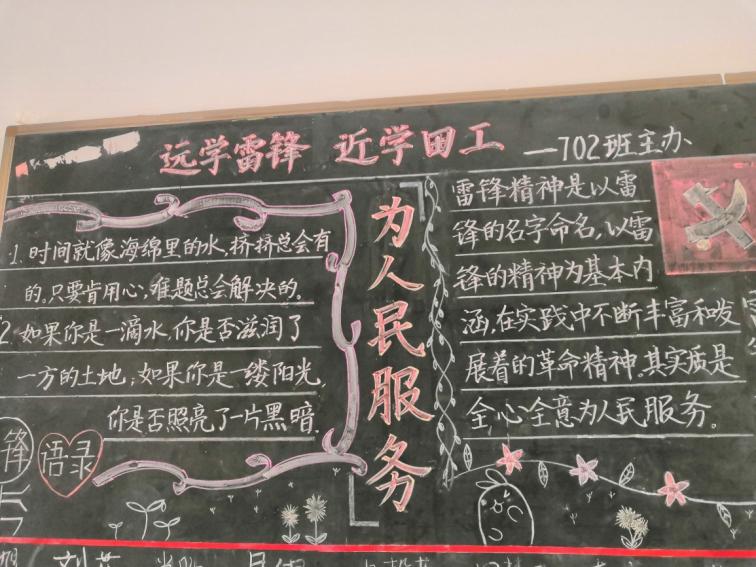 远学雷锋 近学田工 —702班主办
1. 时间就像海绵里的水,挤挤总会有
的。只要肯用心,难题总会解决的。
2. 如果你是一滴水,你是否滋润了
一方的土地;如果你是一缕阳光,
你是否照亮了一片黑暗.
锋
语录
为人民服务
雷锋精神是以雷
锋的名字命名,以雷
锋的精神为基本内
涵,在实践中不断丰富和发
展着的革命精神。其实质是
全心全意为人民服务。